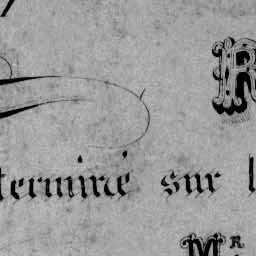 R
terminé sur l
MR